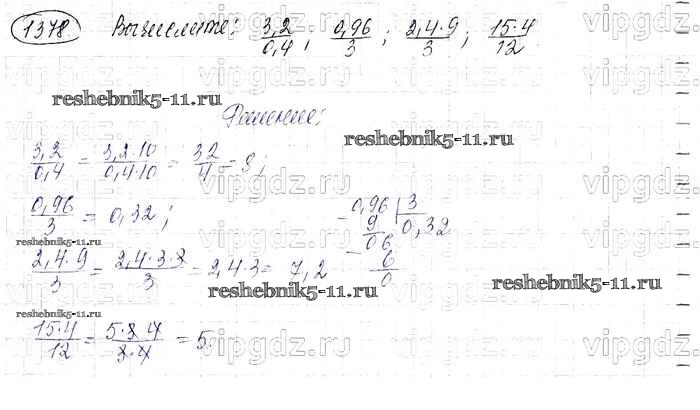 1378 Вычислите: 3,2/0,4; 0,96/3; 2,4·9/3; 15·4/12
reshebnik5-11.ru
Решение:
reshebnik5-11.ru
3,2/0,4 = 3,2·10/0,4·10 = 32/4 = 8;
vipgdz.ru
0,96/3 = 0,32;
0,96 | 3
9 0,32
06
6
0
reshebnik5-11.ru
2,4·9/3 = 2,4·3·3/3 = 2,4·3 = 7,2
reshebnik5-11.ru
reshebnik5-11.ru
reshebnik5-11.ru
15·4/12 = 5·3·4/3·4 = 5.
vipgdz.ru